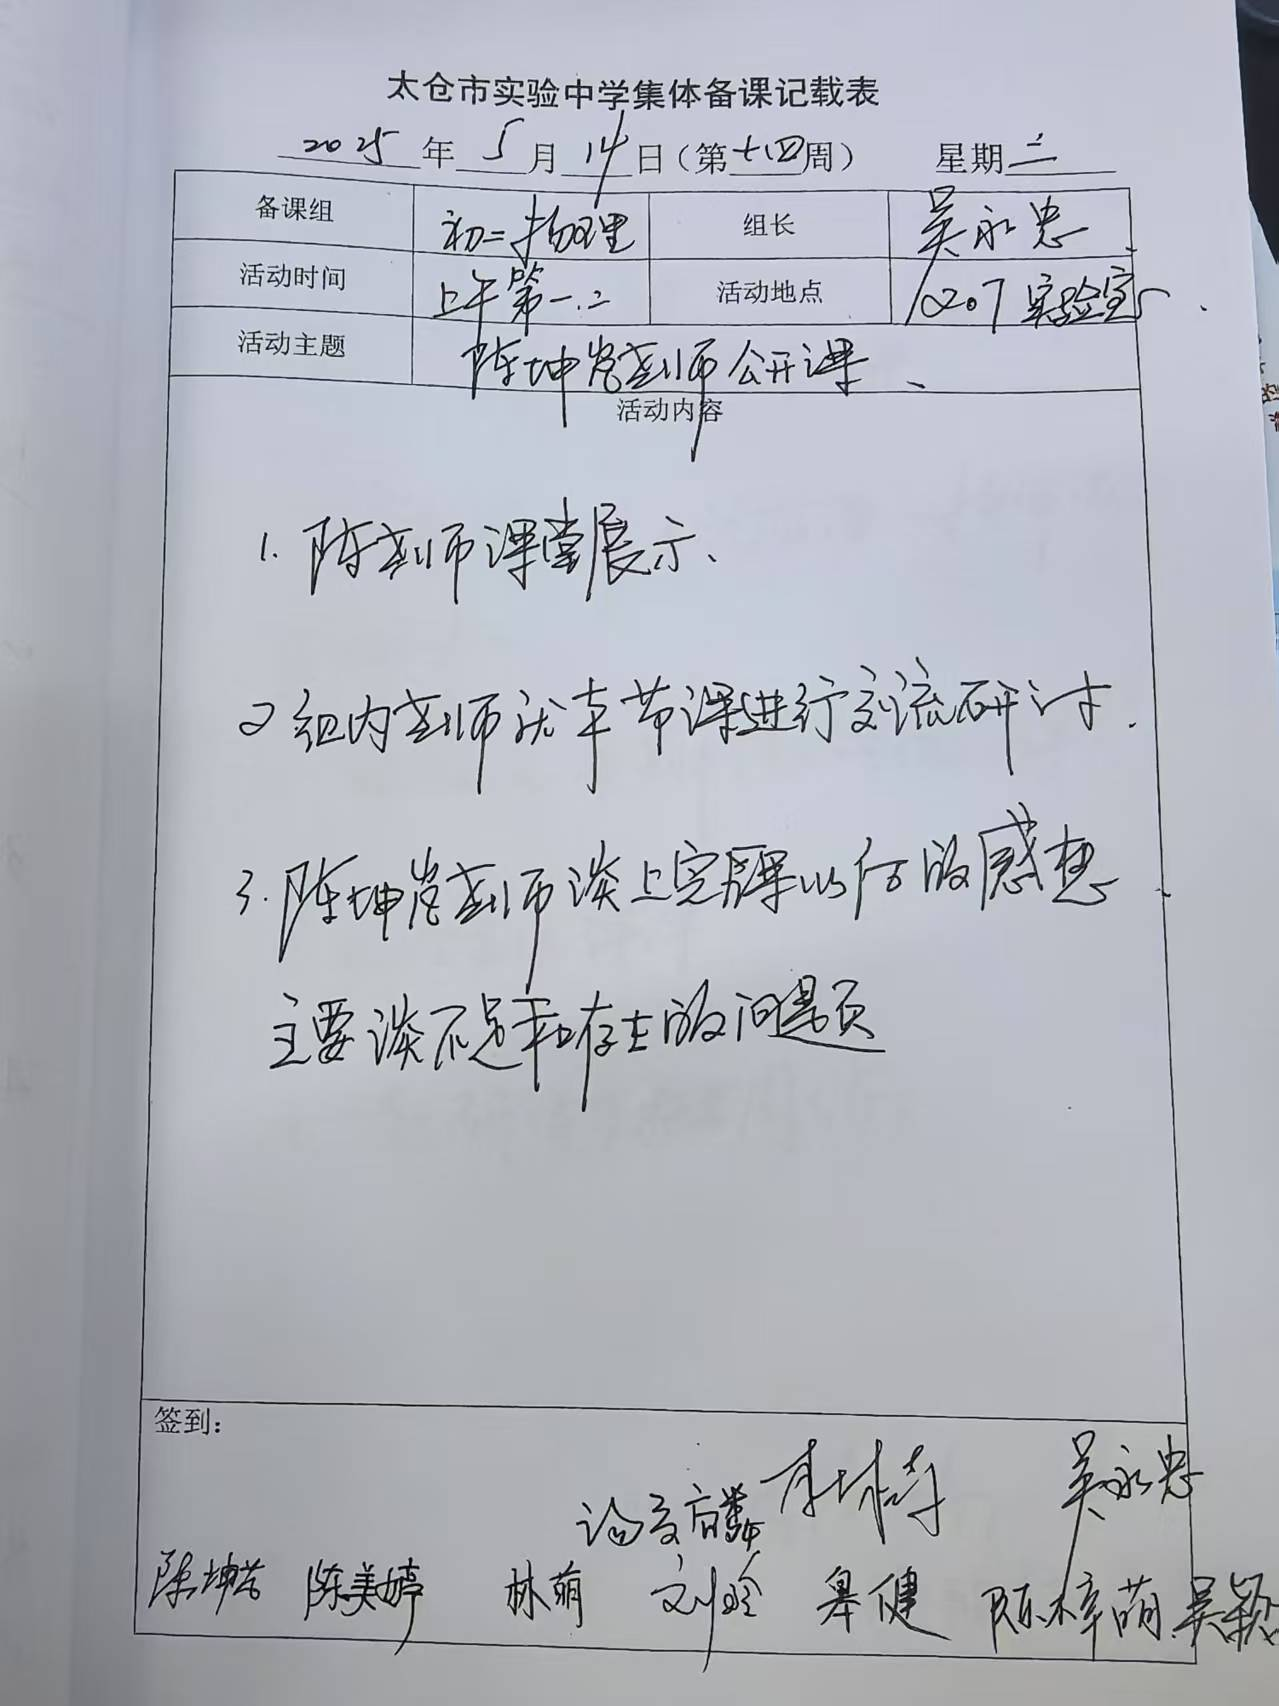 太仓市实验中学集体备课记载表
2025年5月14日(第十四周) 星期三
备课组 初二物理 组长 吴永忠
活动时间 上午第一.二 活动地点 1207实验室
活动主题 陈坤岩老师公开课、
活动内容
1. 陈老师课堂展示、
2 组内老师就本节课进行交流研讨.
3. 陈坤岩老师谈上完课以后的感想
主要谈不足和存在的问题
签到:
吴永忠
陈美婷 林萌 刘玲 皋健 陈梓萌 吴颖